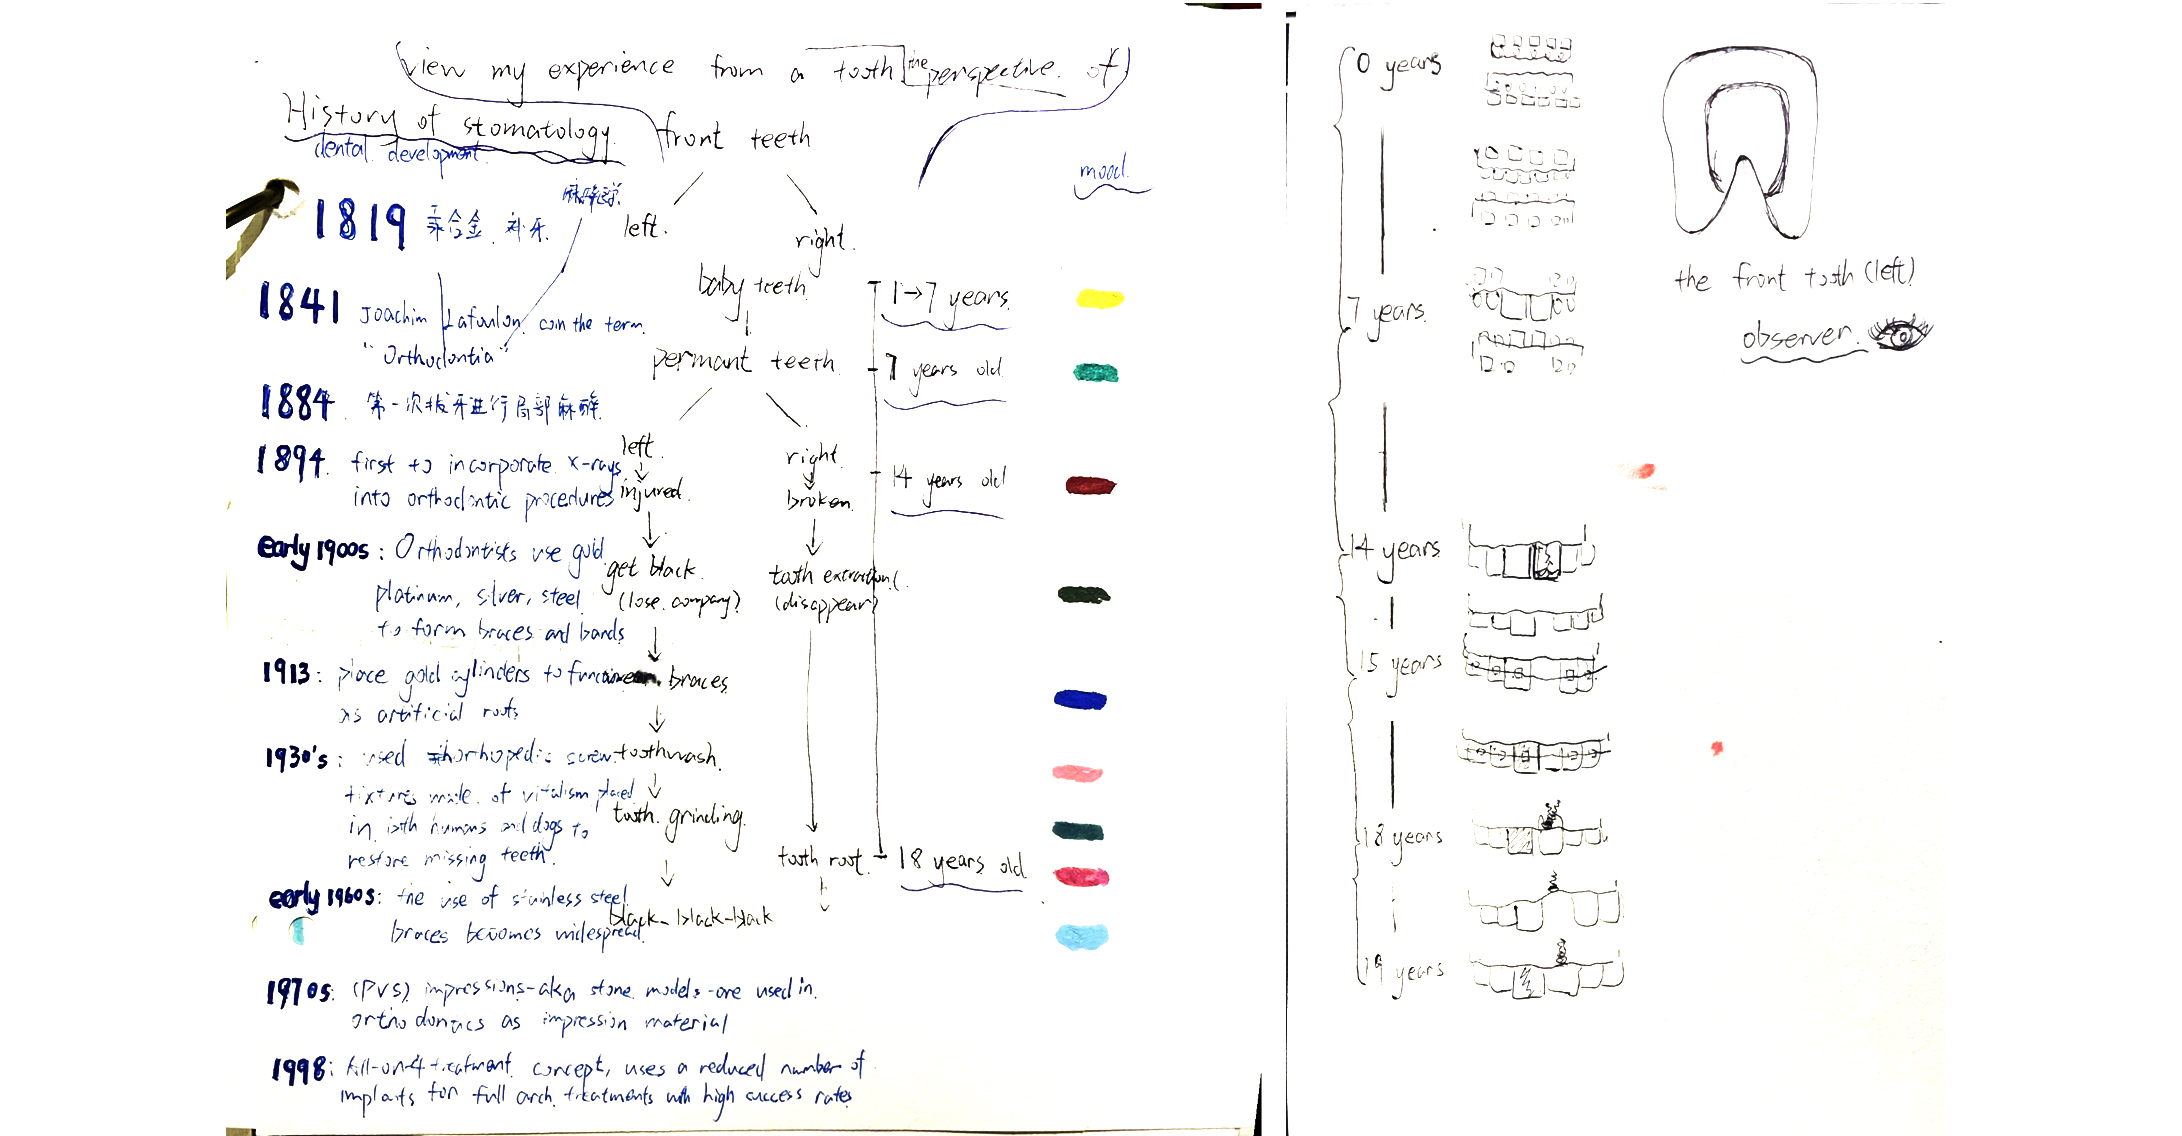 view my experience from a tooth the perspective of
History of stomatology
dental development
1819 汞合金 补牙.
1841 Joachim Lafoulon coin the term.
"Orthodontia"
1884. 第一次拔牙进行局部麻醉
1894. first to incorporate x-rays
into orthodontic procedures
early 1900s: Orthodontists use gold
platinum, silver, steel
to form braces and bands
1913: place gold cylinders to
as artificial roots
1930's: used orthopedic screw
fixtures made of vitalism placed
in both humans and dogs to
restore missing teeth.
early 1960s: the use of stainless steel
braces becomes widespread.
1970s: (PVS) impressions-aka stone models-are used in.
orthodontics as impression material
1998: All-on-4 treatment concept, uses a reduced number of
implants for full arch treatments with high success rates
front teeth
left.
right.
baby teeth
permant teeth
left
injured.
get black.
(lose company?)
braces
toothwash.
tooth grinding.
black-black-black
right
broken
tooth extraction(
(disappear)
tooth root
1→7 years.
7 years old
14 years old
18 years old
mood.
0 years
7 years.
14 years
15 years
18 years
19 years
the front tooth (left)
observer.